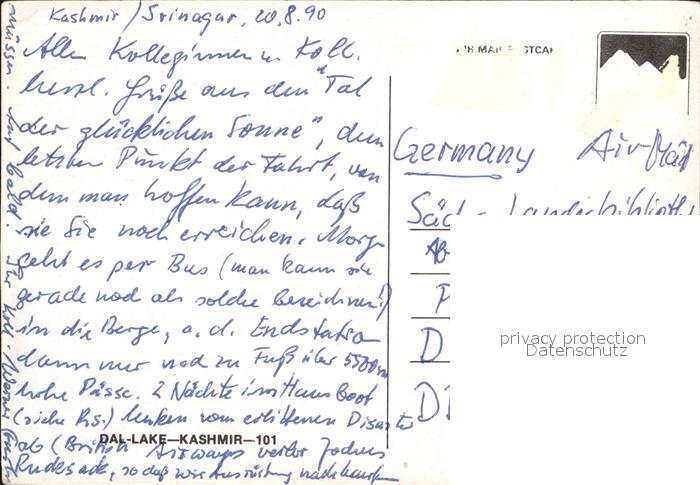 Kashmir / Srinagar, 20.8.90
Allen Kolleginnen u. Koll.
herzl. Grüße aus dem "Tal
der glücklichen Sonne", dem
letzten Punkt der Fahrt, von
dem man hoffen kann, daß
sie Sie noch erreichen. Morgen
geht es per Bus (man kann sie
gerade noch als solche bezeichnen!)
in die Berge, a. d. Endstation
dann nur noch zu Fuß über 5500 m
hohe Pässe. 2 Nächte im Hausboot
(siehe Rs.) lenken vom erlittenen Disaster
ab (British Airways verlor
Rucksack, so daß wir Ausrüstung nachkaufen
müssen. Auf bald! Ihr Koll. Werner
DAL-LAKE—KASHMIR—101
AIR MAIL POSTCARD
Germany Air-Mail
Säch. Landesbibliothek
D
privacy protection
Datenschutz